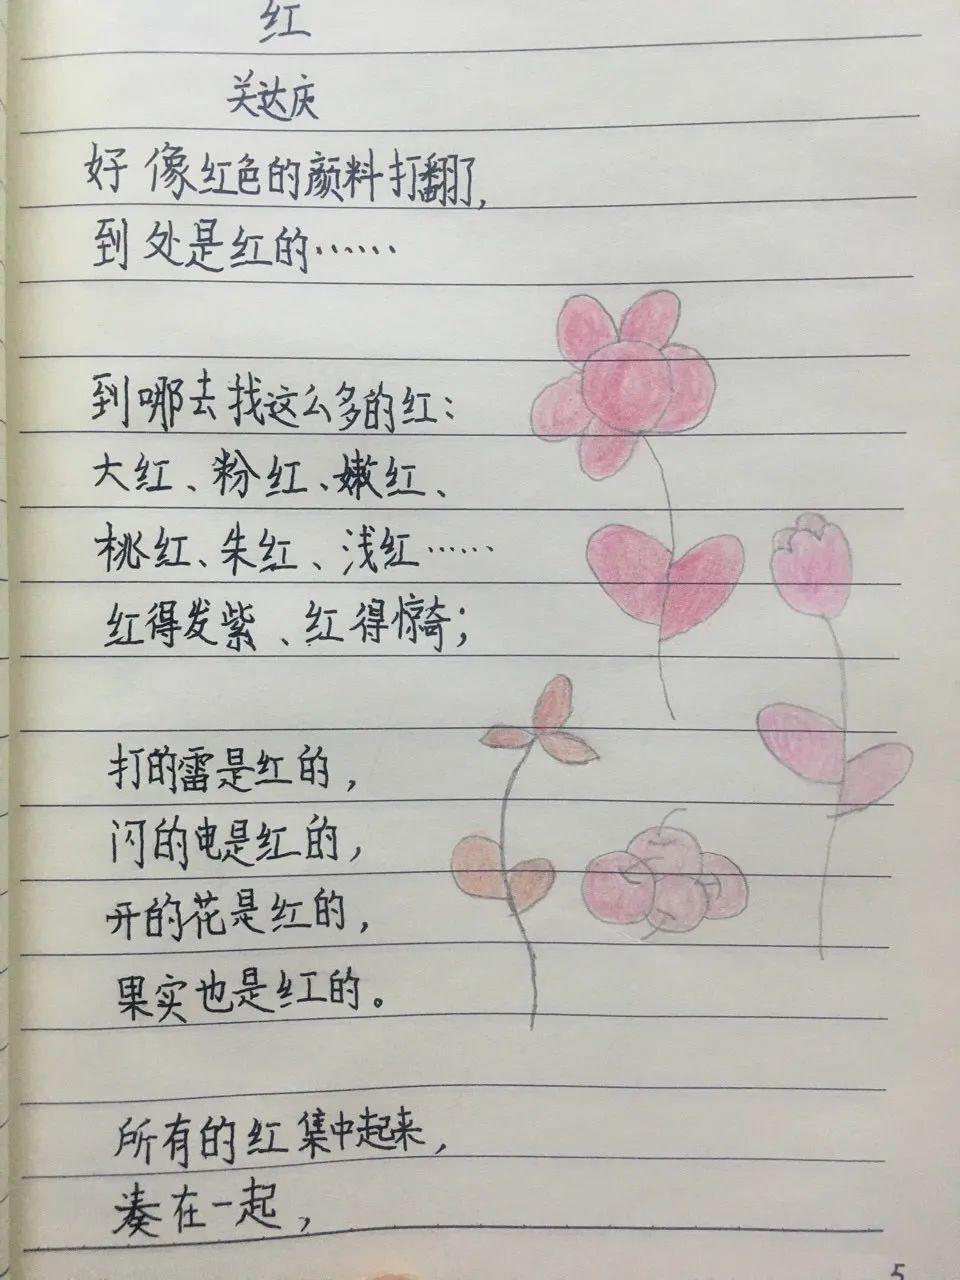 红
关达庆
好像红色的颜料打翻了,
到处是红的……
到哪去找这么多的红：
大红、粉红、嫩红、
桃红、朱红、浅红……
红得发紫、红得惊奇；
打的雷是红的，
闪的电是红的，
开的花是红的，
果实也是红的。
所有的红集中起来，
凑在一起，
5